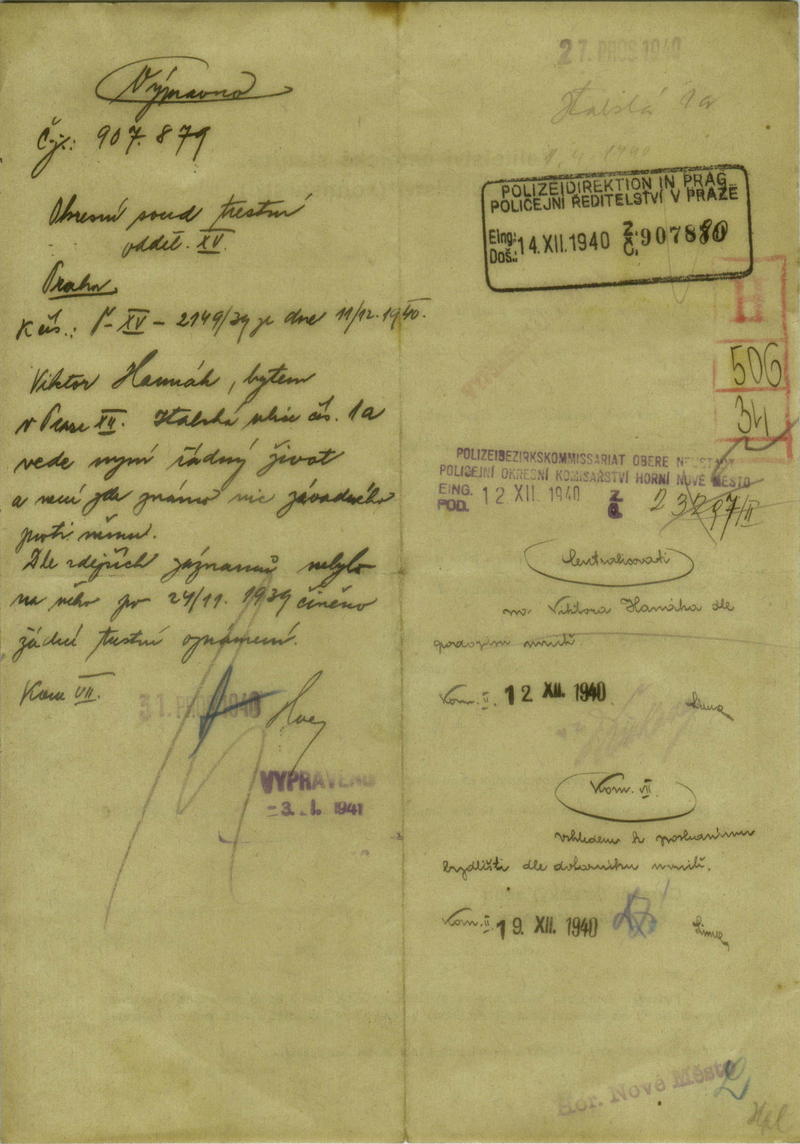 Výpravno
Čj.: 907.879
Okresní soud trestní
odděl. XV.
Praha
K čís.: T-XV-2149/39 ze dne 11/12. 1940.
Viktor Hamák, bytem
v Praze XII. Italská ulice čís. 1a
vede nyní řádný život
a není zde známo nic závadného
proti němu.
Dle zdejších záznamů nebylo
na něho po 24/11. 1939 činěno
žádné trestní oznámení.
Kom VII.
31. PROS 1940
VYPRAVENO
-3. I. 1941
27. PROS 1940
Italská 1a
POLIZEIDIREKTION IN PRAG
POLICEJNÍ ŘEDITELSTVÍ V PRAZE
Eing.: Doš.: 14. XII. 1940 Z. Č. 907880
506
34
POLIZEIBEZIRKSKOMMISSARIAT OBERE NEUSTADT
POLICEJNÍ OKRESNÍ KOMISAŘSTVÍ HORNÍ NOVÉ MĚSTO
EING. POD. 12 XII. 1940 Z. Č. 23297/II
Centralisovati
na Viktora Hamáka dle
uvnitř
Kom. II. 12 XII. 1940
Kom. VII.
vzhledem k poslednímu
bydlišti dle uvnitř.
Kom. II. 19 XII. 1940
Hor. Nové Město